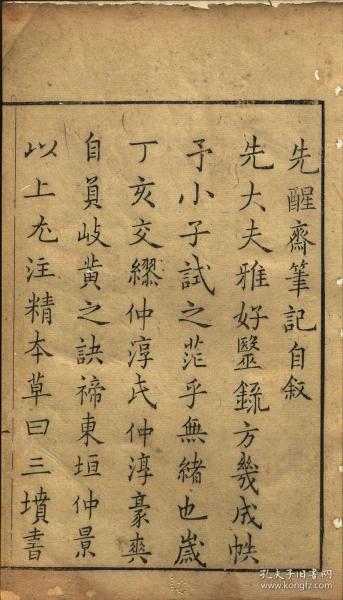 先醒齋筆記自叙
先大夫雅好毉錄方幾成帙
予小子試之茫乎無緒也嵗
丁亥交繆仲淳氏仲淳豪爽
自負岐黄之訣禘東垣仲景
以上尤注精本草曰三墳書
孔夫子旧书网